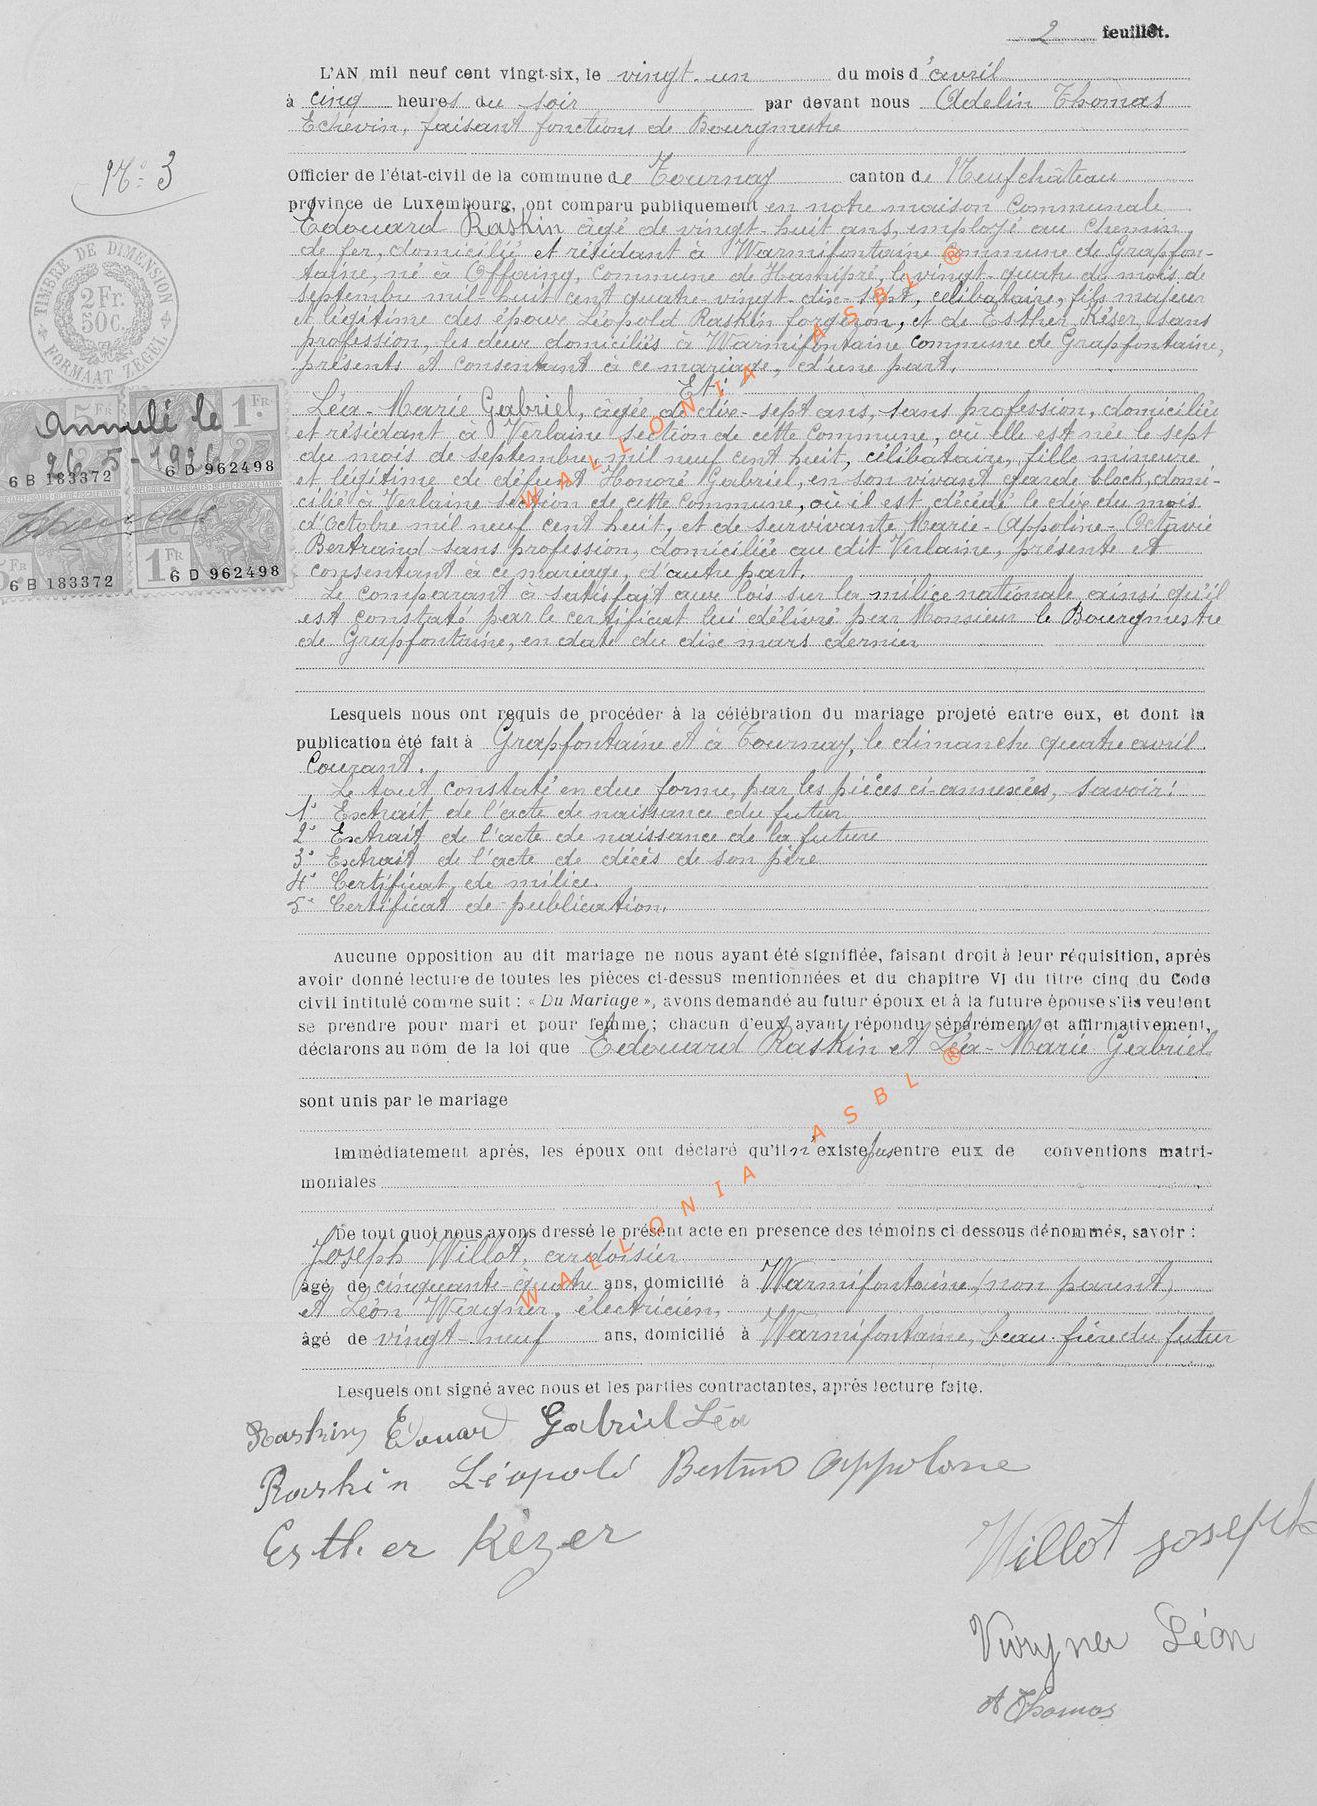 2 feuillet.
L'AN mil neuf cent vingt-six, le vingt-un du mois d'avril
à cinq heures du soir par devant nous Adelin Thomas
Echevin, faisant fonctions de Bourgmestre
N° 3
Officier de l'état-civil de la commune de Tournay canton de Neufchâteau
province de Luxembourg, ont comparu publiquement en notre maison Communale
Edouard Raskin âgé de vingt-huit ans, employé au chemin
de fer, domicilié et résidant à Warmifontaine Commune de Grapfon-
taine, né à Offaing, Commune de Hamipré, le vingt-quatre du mois de
septembre mil-huit cent quatre-vingt-dix-sept, célibataire, fils majeur
et légitime des époux Léopold Raskin forgeron, et de Esther Késer, sans
profession, les deux domiciliés à Warmifontaine Commune de Grapfontaine,
présents et consentant à ce mariage, d'une part.
Et:
Léa-Marie Gabriel, âgée de dix-sept ans, sans profession, domiciliée
et résidant à Verlaine section de cette Commune, où elle est née le sept
du mois de septembre, mil neuf cent huit, célibataire, fille mineure
et légitime de défunt Honoré Gabriel, en son vivant garde block, domi-
cilié à Verlaine section de cette Commune, où il est décédé le dix du mois
d'Octobre mil neuf cent huit, et de survivante Marie-Appoline-Octavie
Bertrand sans profession, domiciliée au dit Verlaine, présente et
consentant à ce mariage, d'autre part.
Le comparant a satisfait aux lois sur la milice nationale ainsi qu'il
est constaté par le certificat lui délivré par Monsieur le Bourgmestre
de Grapfontaine, en date du dix mars dernier
TIMBRE DE DIMENSION
2 Fr.
50 C.
FORMAAT ZEGEL
Annulé le
26-5-1926
5 FR
1 FR
6 B 183372
6 D 962498
1 FR
6 B 183372
6 D 962498
Lesquels nous ont requis de procéder à la célébration du mariage projeté entre eux, et dont la
publication été fait à Grapfontaine et à Tournay, le dimanche quatre avril
Courant.
Le tout constaté en due forme, par les pièces ci-annexées, savoir:
1° Extrait de l'acte de naissance du futur
2° Extrait de l'acte de naissance de la future
3° Extrait de l'acte de décès de son père
4° Certificat de milice.
5° Certificat de publication.
Aucune opposition au dit mariage ne nous ayant été signifiée, faisant droit à leur réquisition, après
avoir donné lecture de toutes les pièces ci-dessus mentionnées et du chapitre VI du titre cinq du Code
civil intitulé comme suit : « Du Mariage », avons demandé au futur époux et à la future épouse s'ils veulent
se prendre pour mari et pour femme ; chacun d'eux ayant répondu séparément et affirmativement,
déclarons au nom de la loi que Edouard Raskin et Léa-Marie Gabriel
sont unis par le mariage
Immédiatement après, les époux ont déclaré qu'il n'existe pas entre eux de conventions matri-
moniales
De tout quoi nous avons dressé le présent acte en presence des témoins ci dessous dénommés, savoir :
Joseph Willot, ardoisier
âgé de cinquante-quatre ans, domicilié à Warmifontaine, (non parent)
et Léon Wuyner, électricien,
âgé de vingt-neuf ans, domicilié à Warmifontaine, beau-frère du futur
Lesquels ont signé avec nous et les parties contractantes, après lecture faite.
Raskin Edouard Gabriel Léa
Raskin Léopold Bertrand Appolone
Esther Kèzer
Willot Joseph
Léon
A Thomas
WALLONIA ASBL ®
WALLONIA ASBL ®